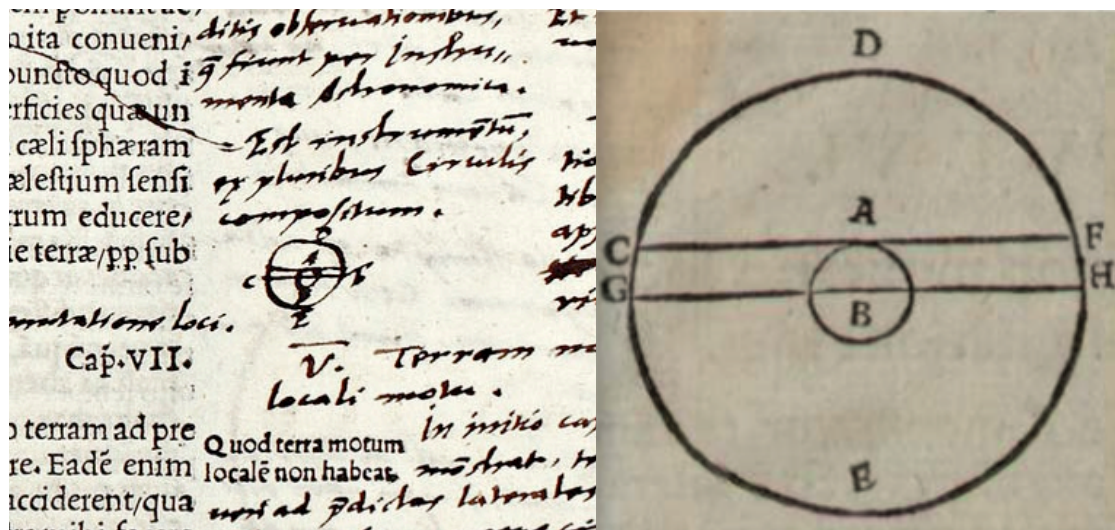 mita conueni/
puncto quod i
erficies quæ un
cæli ſphæram
æleſtium ſenſi
trum educere/
ie terræ/ꝓꝑ ſub
mutatione loci.
Cap. VII.
o terram ad pre
re. Eadē enim
acciderent/qua
ditis obſeruationibus,
q̃ fiunt per Inſtru„
menta Aſtronomica.
Eſt inſtrumētũ,
ex pluribus Circulis
compoſitum.
D
A
C F
B
E
V. Terram
locali motu.
Quod terra motum
localē non habeat.
In initio
mōſtrat,
ad p̄dictas laterales
Et
D
A
C F
G H
B
E